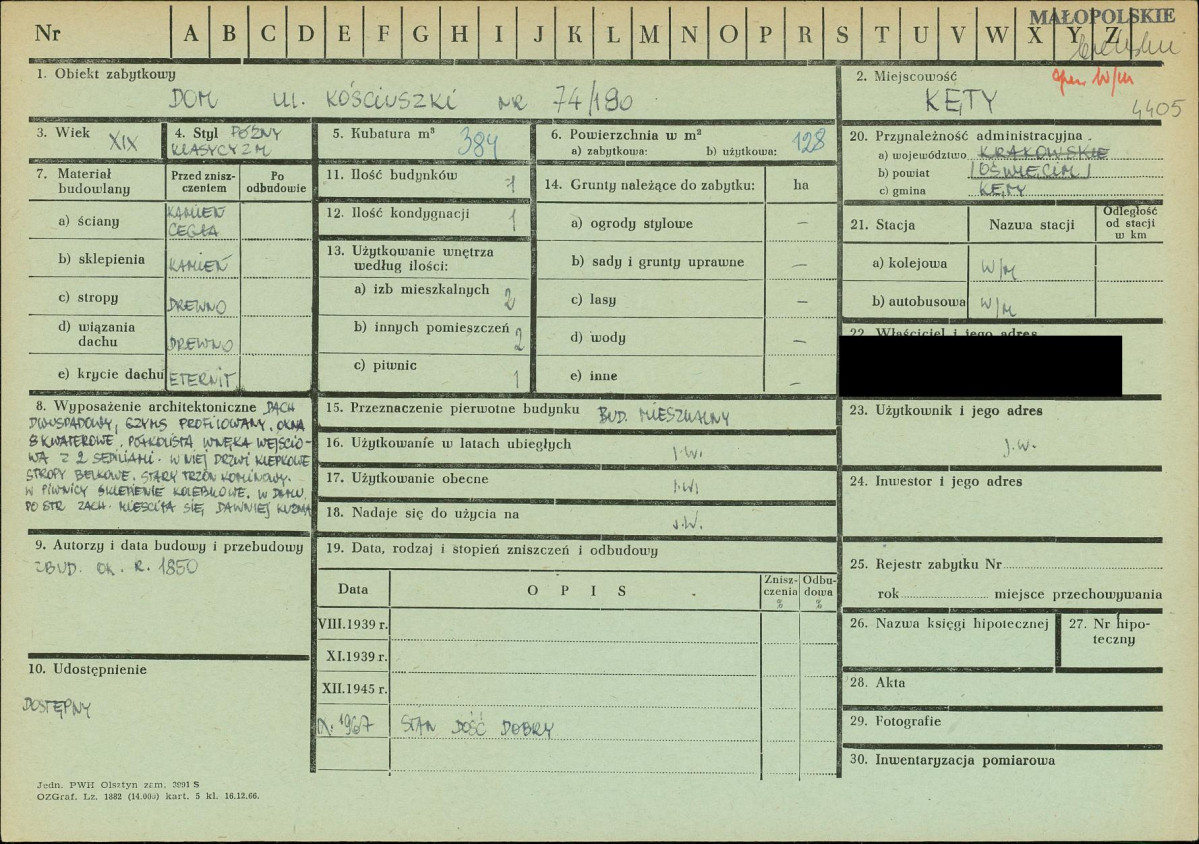 MAŁOPOLSKIE
Nr A B C D E F G H I J K L M N O P R S T U V W X Y Z
1. Obiekt zabytkowy
DOM ul. KOŚCIUSZKI NR 74/190
2. Miejscowość
KĘTY
4405
3. Wiek XIX
4. Styl PÓŹNY
KLASYCYZM
5. Kubatura m³ 384
6. Powierzchnia w m²
a) zabytkowa: b) użytkowa: 128
20. Przynależność administracyjna.
a) województwo KRAKOWSKIE
b) powiat /OŚWIĘCIM/
c) gmina KĘTY
7. Materiał
budowlany
Przed znisz-
czeniem
Po
odbudowie
a) ściany KAMIEŃ
CEGŁA
b) sklepienia KAMIEŃ
c) stropy DREWNO
d) wiązania
dachu DREWNO
e) krycie dachu ETERNIT
11. Ilość budynków 1
12. Ilość kondygnacji 1
13. Użytkowanie wnętrza
według ilości:
a) izb mieszkalnych 2
b) innych pomieszczeń 2
c) piwnic 1
14. Grunty należące do zabytku: ha
a) ogrody stylowe —
b) sady i grunty uprawne —
c) lasy —
d) wody —
e) inne —
21. Stacja Nazwa stacji Odległość
od stacji
w km
a) kolejowa W/M
b) autobusowa W/M
22. Właściciel i jego adres
8. Wyposażenie architektoniczne DACH
DWUSPADOWY, GZYMS PROFILOWANY. OKNA
8 KWATEROWE. PÓŁKOLISTA WNĘKA WEJŚCIO-
WA Z 2 SEDILIAMI. W NIEJ DRZWI KLEPKOWE
STROPY BELKOWE. STARY TRZON KOMINOWY.
W PIWNICY SKLEPIENIE KOLEBKOWE. W DOMU
PO STR ZACH. MIEŚCIŁA SIĘ DAWNIEJ KUŹNIA
15. Przeznaczenie pierwotne budynku BUD. MIESZKALNY
16. Użytkowanie w latach ubiegłych j.w.
17. Użytkowanie obecne j.w.
18. Nadaje się do użycia na j.w.
23. Użytkownik i jego adres
j.w.
24. Inwestor i jego adres
9. Autorzy i data budowy i przebudowy
ZBUD. OK. R. 1850
19. Data, rodzaj i stopień zniszczeń i odbudowy
Data O P I S Znisz-
czenia
%
Odbu-
dowa
%
VIII.1939 r.
XI.1939 r.
XII.1945 r.
IX. 1967 STAN DOŚĆ DOBRY
25. Rejestr zabytku Nr
rok miejsce przechowywania
26. Nazwa księgi hipotecznej
27. Nr hipo-
teczny
10. Udostępnienie
DOSTĘPNY
28. Akta
29. Fotografie
30. Inwentaryzacja pomiarowa
Jedn. PWH Olsztyn zam. 3991 S
OZGraf. Lz. 1882 (14.000) kart. 5 kl. 16.12.66.